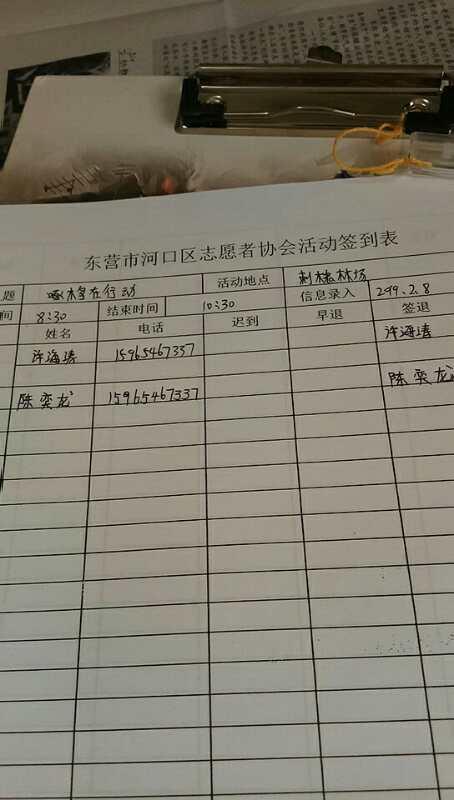 东营市河口区志愿者协会活动签到表
题 啄木鸟在行动 活动地点 刺槐林场
间 8:30 结束时间 10:30 信息录入 299.2.8
姓名 电话 迟到 早退 签退
许海涛 15965467337 许海涛
陈奕龙 15965467337 陈奕龙